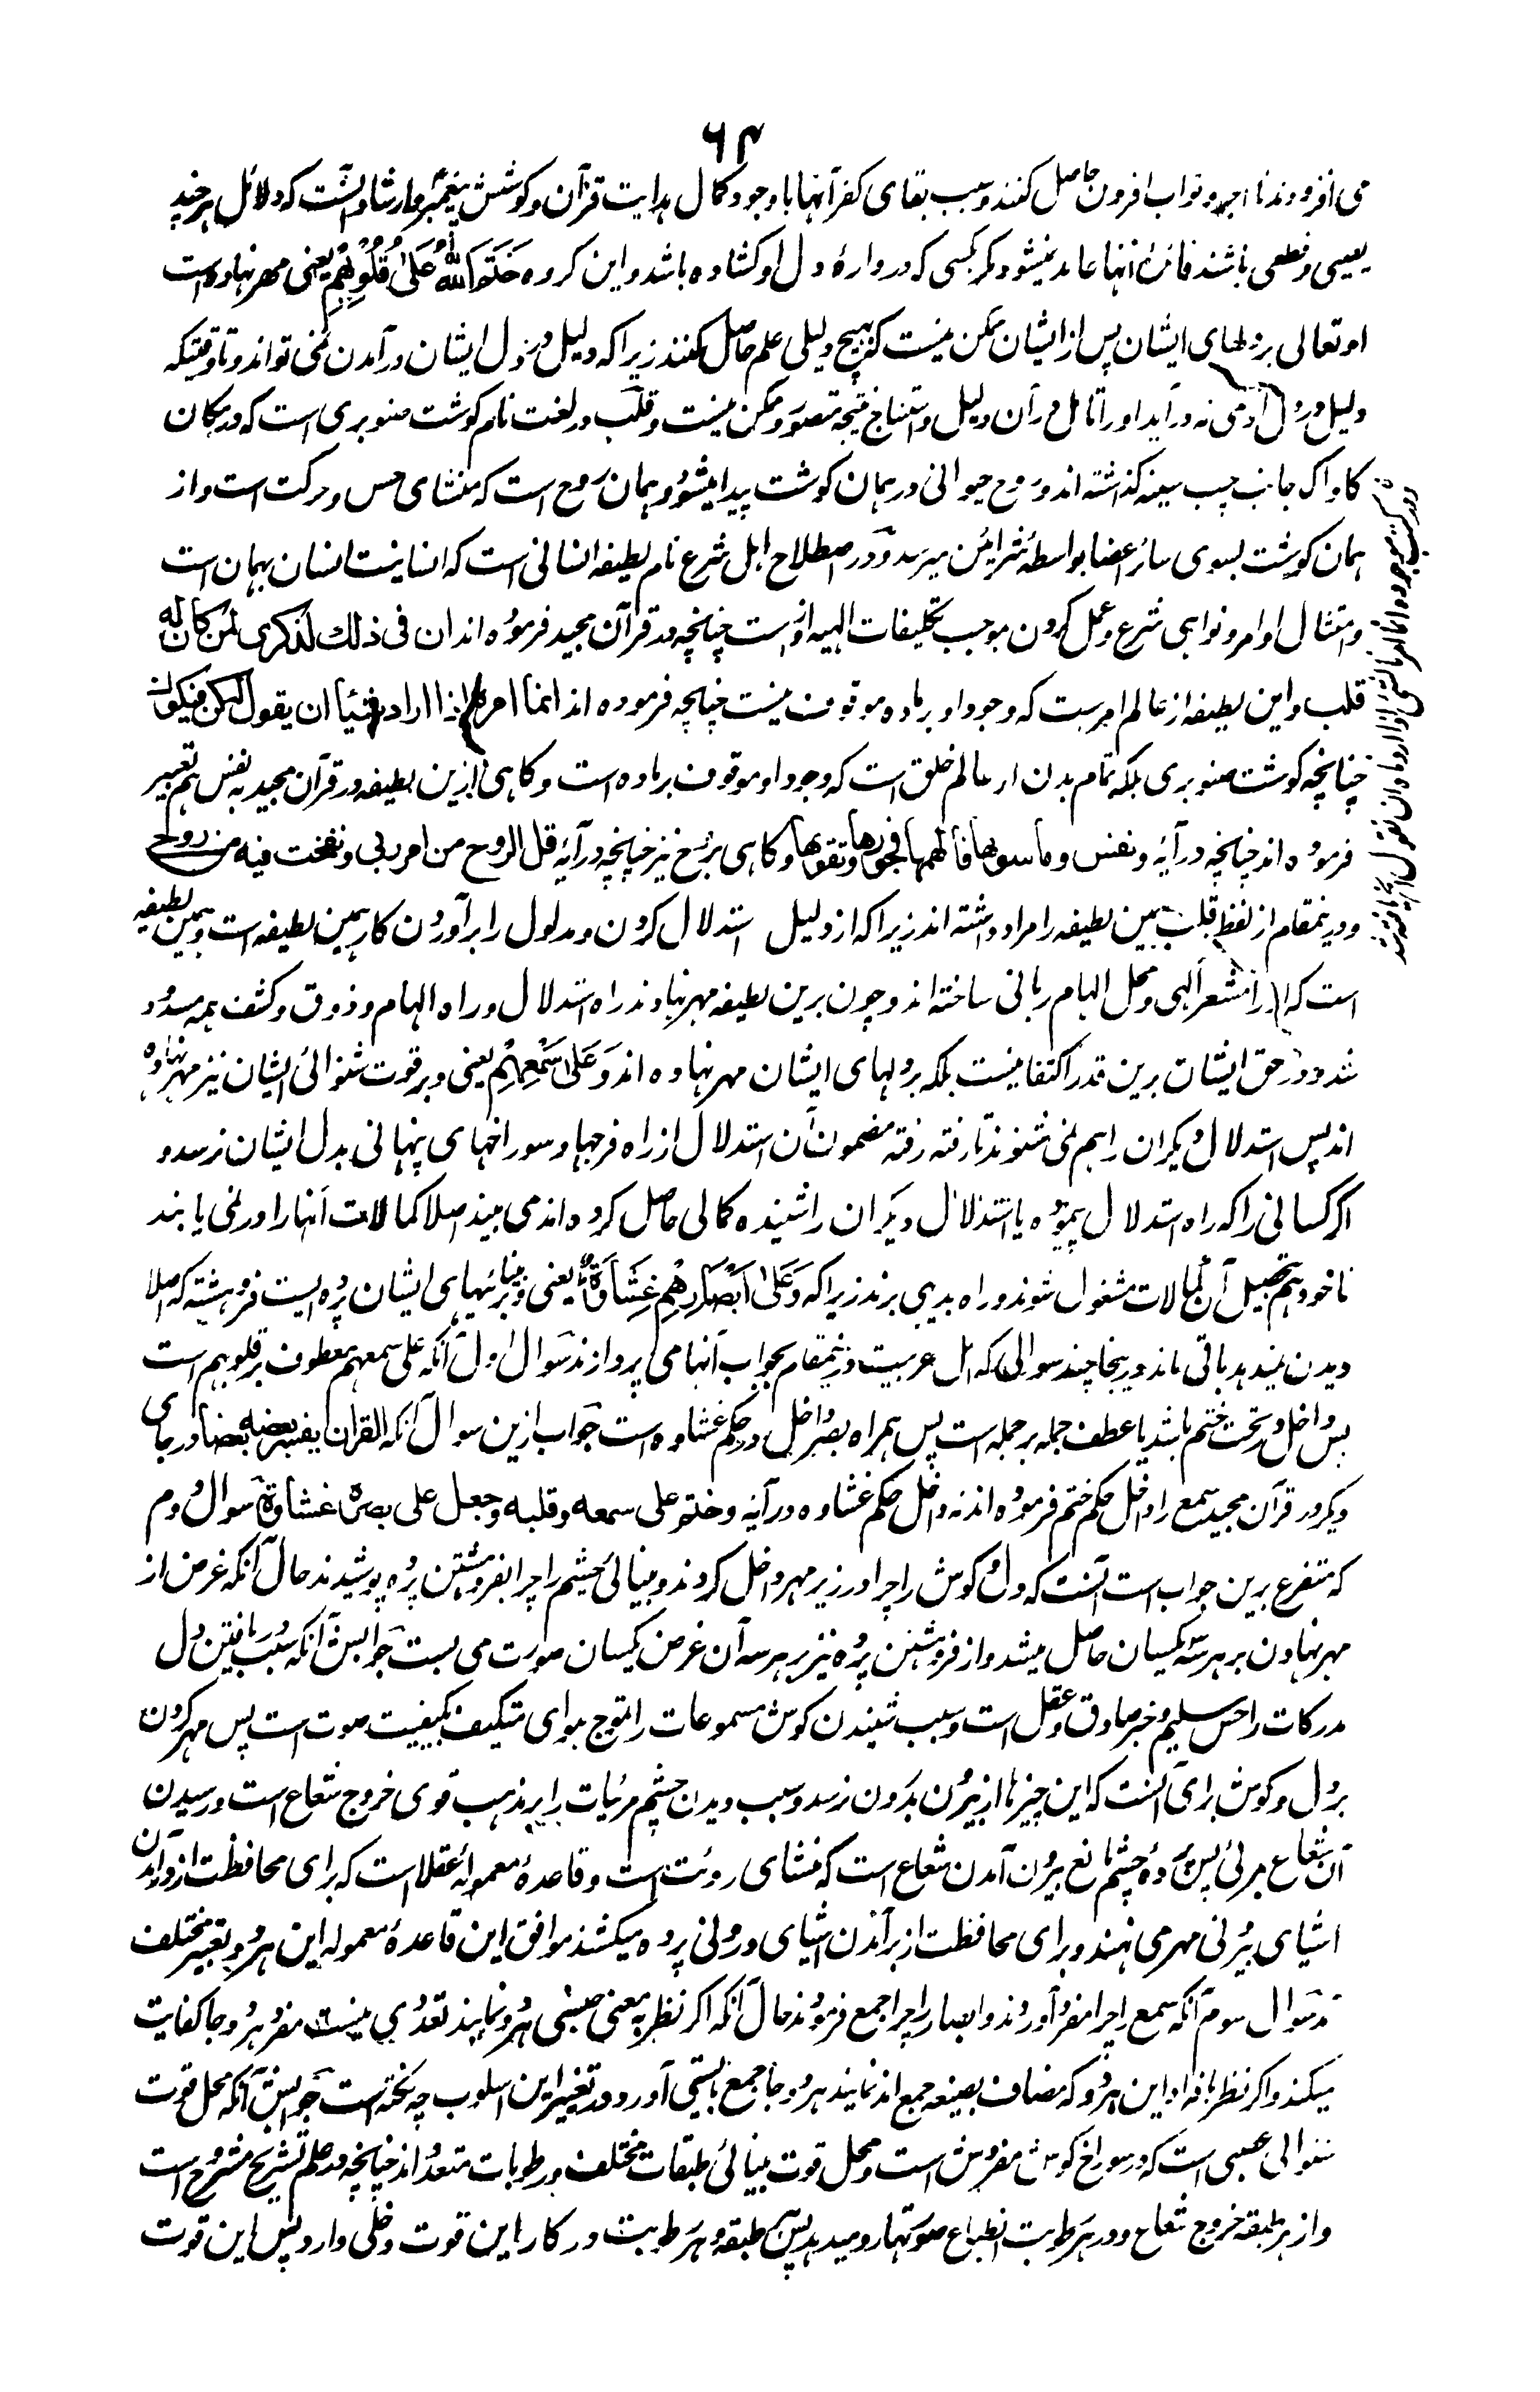 ۶۴
می افزودند تا اجر و ثواب افزون حاصل کنند و سبب بقای کفر آنها با وجود کمال هدایت قرآن و کوشش پیغمبر و ارشاد آنست که دلائل هرچند
یقینی و قطعی باشند فائدۀ آنها عاید نمیشود مگر بکسی که دروازۀ دل او کشاده باشد و این کروه خَتَمَ اللّٰهُ عَلٰی قُلُوْبِهِمْ یعنی مهر نهاده است
او تعالی بر دلهای ایشان پس از ایشان ممکن نیست که بهیچ دلیلی علم حاصل کنند زیرا که دلیل در دل ایشان در آمدن نمی تواند و تا وقتیکه
دلیل در دل آدمی نه در آید او را تامل در آن دلیل و استنتاج نتیجه متصور و ممکن نیست و قلب در لغت نام کوشت صنوبری است که در مکان
کاواک جانب چپ سینه کذاشته اند و روح حیوانی در همان کوشت پیدا میشود و همان روح است که منشای حس و حرکت است و از
همان کوشت بسوی سائر اعضا بواسطۀ شرائین میرسد و در اصطلاح اهل شرع نام لطیفه انسانی است که انسانیت انسان بهمان است
و امتثال اوامر و نواهی شرع و عمل کردن بموجب تکلیفات الهیه ازوست چنانچه در قرآن مجید فرموده اند ان فی ذلك لذکری لمن کان له
قلب و این لطیفه از عالم امرست که وجود او بر ماده موقوف نیست چنانچه فرموده اند انما امره اذا اراد شیئا ان یقول له کن فیکون
چنانچه کوشت صنوبری بلکه تمام بدن از عالم خلق است که وجود او موقوف بر ماده است و کاهی ازین لطیفه در قرآن مجید به نفس هم تعبیر
فرموده اند چنانچه در آیۀ و نفس وما سوها فالهمها فجورها وتقوها و کاهی بروح نیز چنانچه در آیۀ قل الروح من امر ربی ونفخت فیه من روحی
و درینمقام از لفظ قلب همین لطیفه را مراد داشته اند زیرا که از دلیل استدلال کردن و مدلول را برآوردن کار همین لطیفه است و همین لطیفه
است که او را مشعر الهی و محل الهام ربانی ساخته اند و چون برین لطیفه مهر نهادند راه استدلال و راه الهام و ذوق و کشف همه مسدود
شد و در حق ایشان برین قدر اکتفا نیست بلکه بر دلهای ایشان مهر نهاده اند وَعَلٰی سَمْعِهِمْ یعنی و بر قوت شنوائی ایشان نیز مهر نهاده
اند پس استدلال دیکران را هم نمی شنوند تا رفته رفته مضمون آن استدلال از راه فرجها و سوراخهای پنهانی بدل ایشان رسد و
اکر کسانی را که راه استدلال پیموده یا استدلال دیکران را شنیده کمالی حاصل کرده اند می بینند اصلا کمالات آنها را در نمی یابند
تا خود هم بتحصیل آن کمالات مشغول شوند و راه بدیی برند زیرا که وَعَلٰی اَبْصَارِهِمْ غِشَاوَةٌ یعنی و بر بینائیهای ایشان پرده ایست فروهشته که اصلا
دیدن نمیدهد باقی ماند درینجا چند سوالی که اهل عربیت درینمقام بجواب آنها می پردازند سوال اول آنکه علی سمعهم معطوف بر قلوبهم است
پس داخل در تحت ختم باشد یا عطف جمله بر جمله است پس همراه بصر داخل در حکم غشاوه است جواب ازین سوال آنکه القرآن یفسر بعضه بعضا در جای
دیکر در قرآن مجید سمع را داخل حکم ختم فرموده اند نه داخل حکم غشاوه در آیۀ وختم علی سمعه وقلبه وجعل علی بصره غشاوة سوال دوم
که متفرع برین جواب است آنست که دل و کوش را چرا در زیر مهر داخل کردند و بینائی چشم را چرا بفروهشتن پرده پوشیدند حال آنکه غرض از
مهر نهادن بر هر سه یکسان حاصل میشد و از فروهشتن پرده نیز بر هر سه آن غرض یکسان صورت می بست جوابش آنکه سبب یافتن دل
مدرکات را حس سلیم و خبر صادق و عقل است و سبب شنیدن کوش مسموعات را تموج هوای متکیف بکیفیت صوت است پس مهر کردن
بر دل و کوش برای آنست که این چیزها از بیرون بدرون نرسد و سبب دیدن چشم مرئیات را بر مذهب قوی خروج شعاع است و رسیدن
آن شعاع بمرئی پس پردۀ چشم مانع بیرون آمدن شعاع است که منشای رویت است و قاعدۀ معمولۀ عقلا است که برای محافظت از در آمدن
اشیای بیرونی مهر می نهند و برای محافظت از بر آمدن اشیای درونی پرده میکشند موافق این قاعدۀ معموله این هر دو تعبیر مختلف
شد سوال سوم آنکه سمع را چرا مفرد آوردند و ابصار را چرا جمع فرمودند حال آنکه اکر نظر به معنی جنسی هر دو نمایند تعددی نیست مفرد هر دو جا کفایت
میکند و اکر نظر بافراد این هر دو که مضاف بصیغه جمع اند نمایند هر دو جا جمع بایستی آورد در تغییر این اسلوب چه نکته است جوابش آنکه محل قوت
شنوائی عصبی است که در سوراخ کوش مفروش است و محل قوت بینائی طبقات مختلف و رطوبات متعدد اند چنانچه در علم تشریح مشروح است
و از هر طبقه خروج شعاع و در هر رطوبت انطباع صورتها رو میدهد پس هر طبقه و هر رطوبت در کار این قوت دخلی دارد پس این قوت